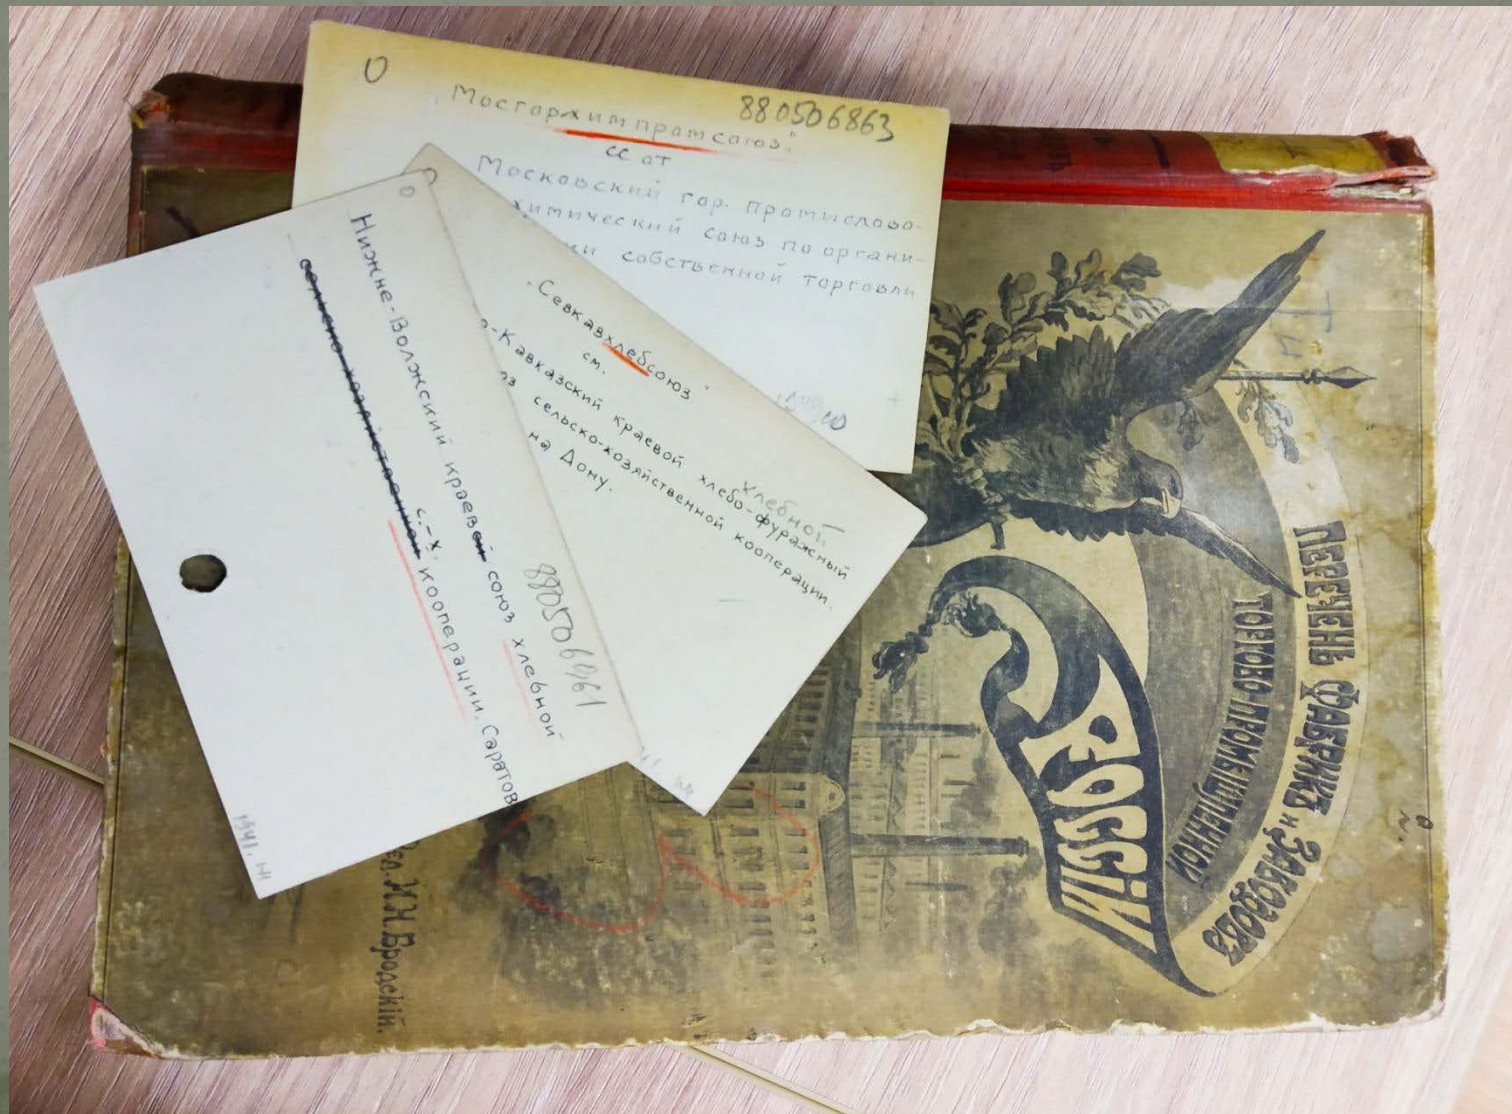 О
880506863
"Мосгорхимпромсоюз"
см. от
Московский гор. промыслово-
химический союз по органи-
собственной торговли
"Севкавхлебсоюз"
см.
-Кавказский краевой хлебо-фуражный
хлебной
сельско-хозяйственной кооперации.
на Дону.
О
Нижне-Волжский краевой союз хлебной
сельско-хозяйственной
с.-х. кооперации. Саратов
1941
ПЕРЕЧЕНЬ ФАБРИКЪ и ЗАВОДОВЪ
ТОРГОВО-ПРОМЫШЛЕННОЙ
РОССІИ
И.Н. Бродскій.